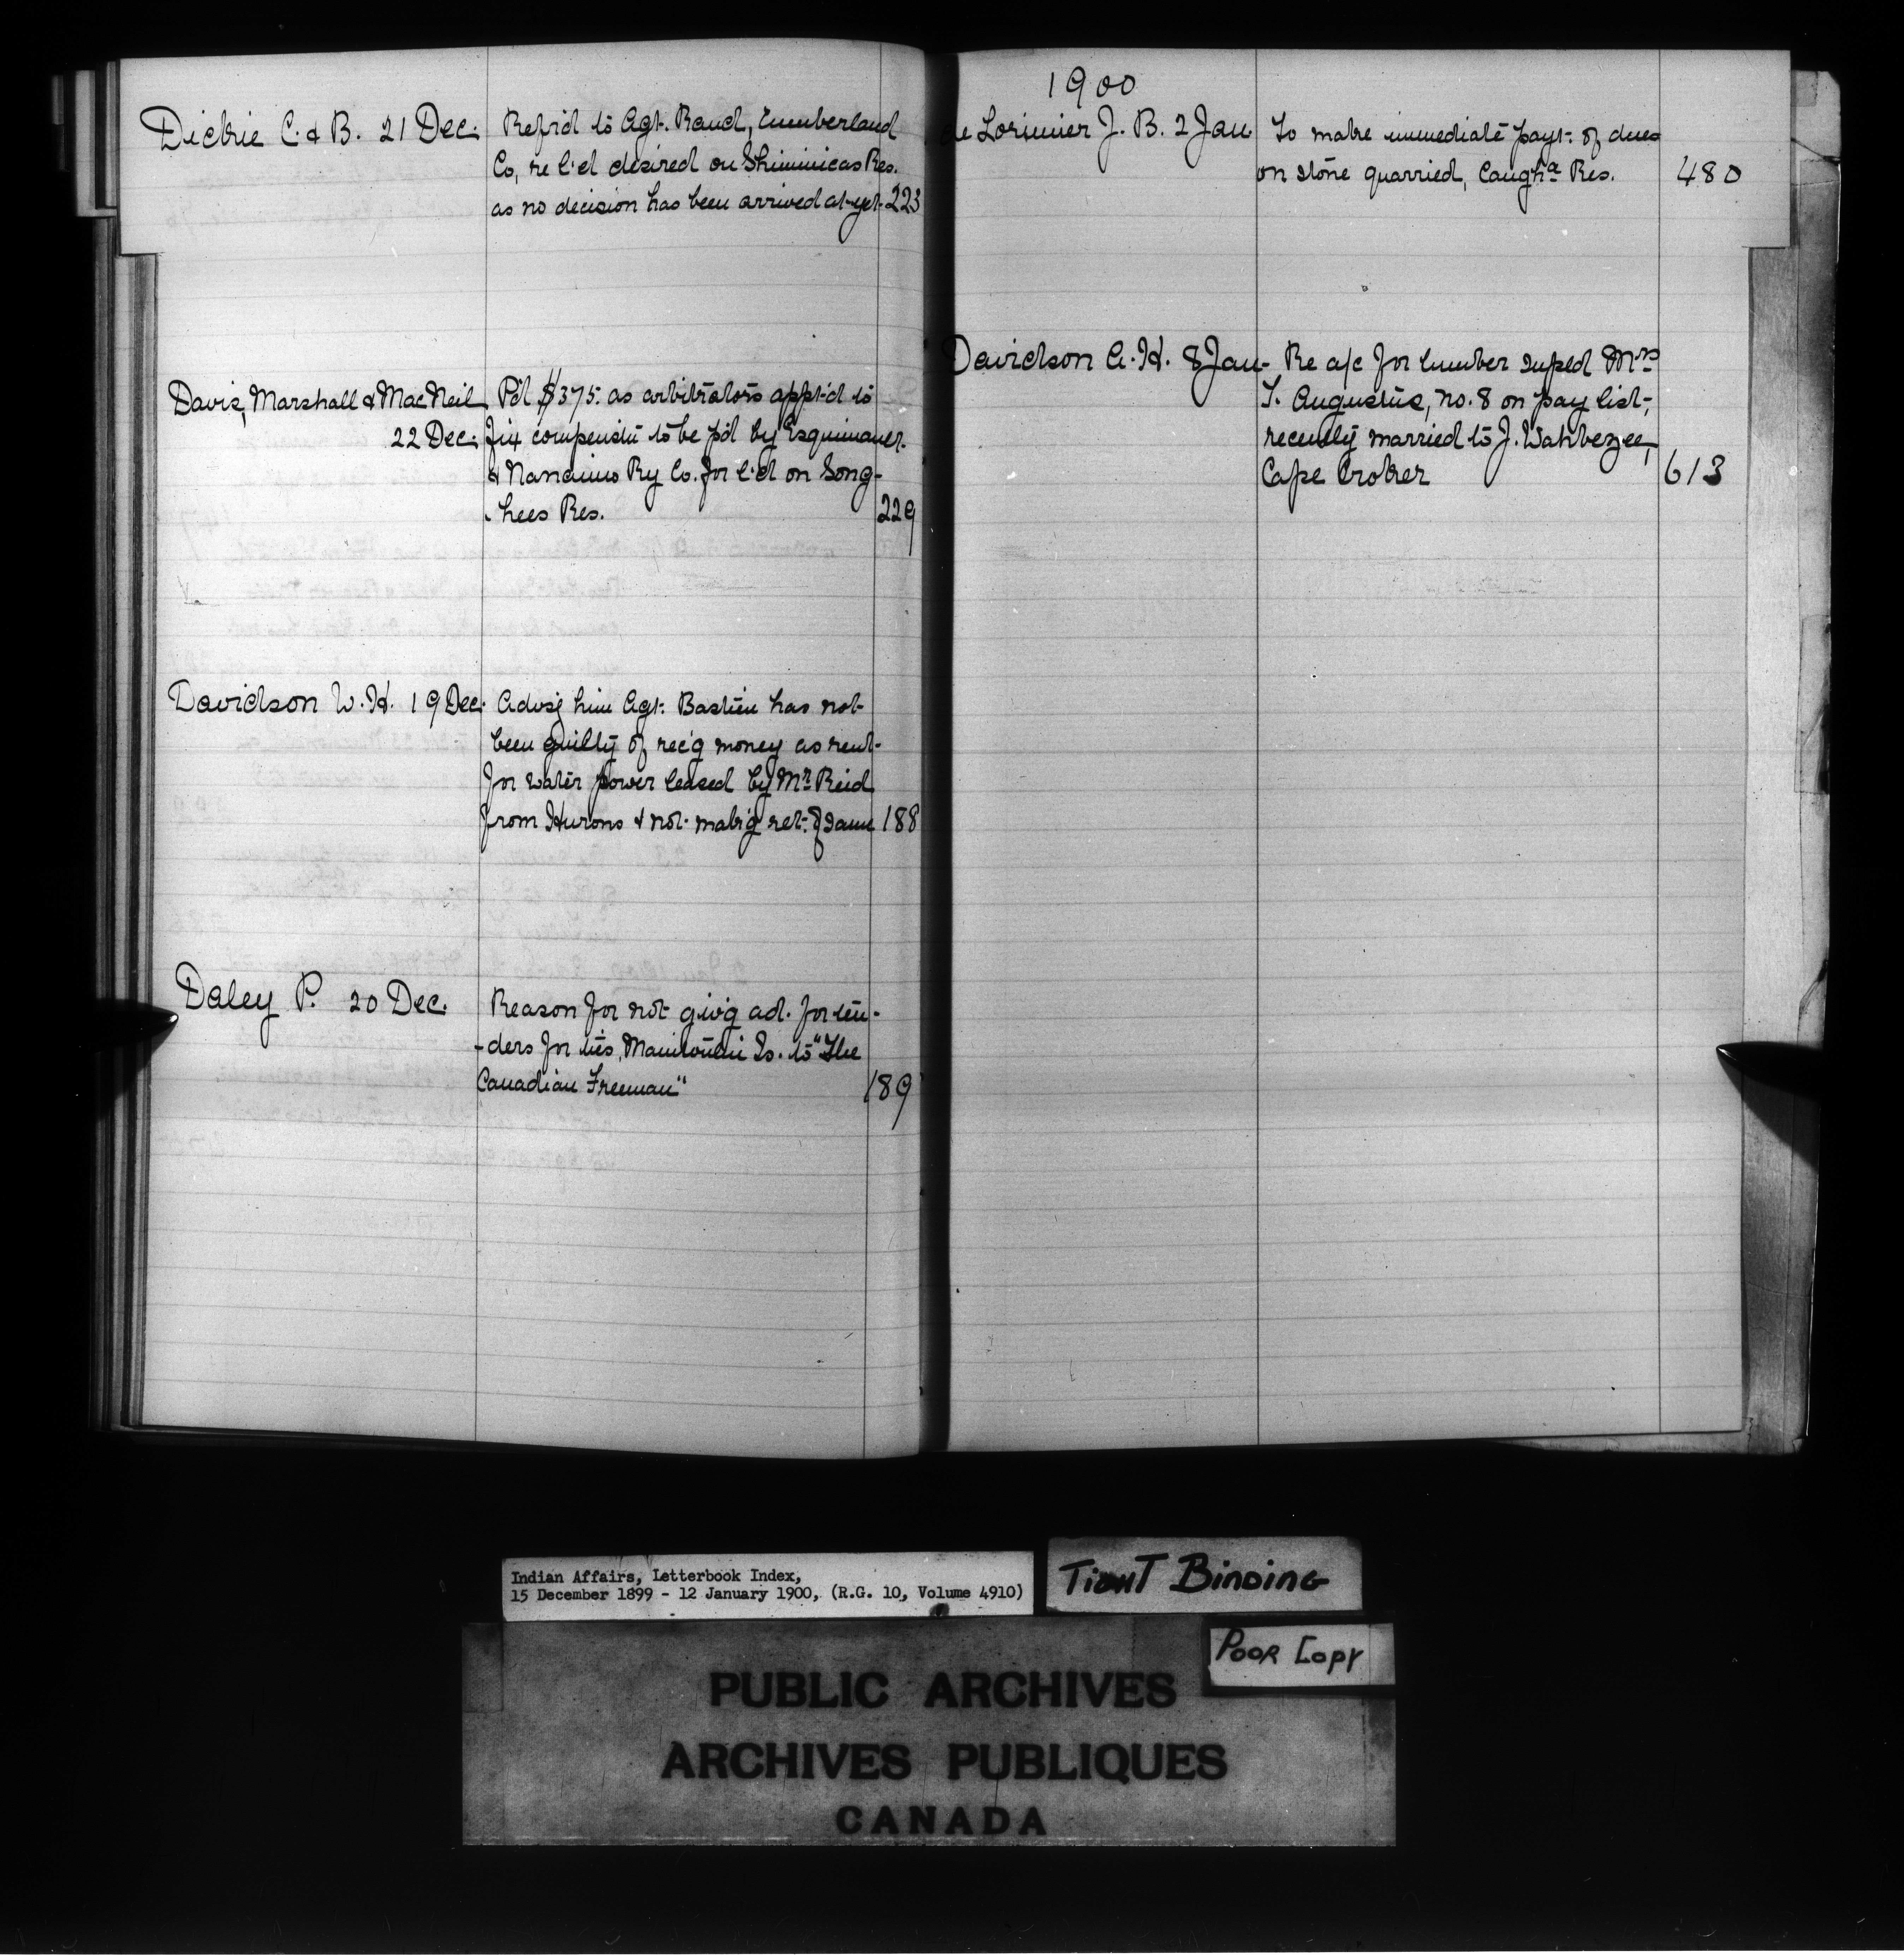 Dickie C. & B. 21 Dec. Refr'd to Agt. Rand, Cumberland
Co, re l'd desired on Shiminicas Res.
as no decision has been arrived at yet. 223
Davis, Marshall & MacNeil Pd $375. as arbitrators appt'd to
22 Dec. fix compensn to be p'd by Esquimault
& Nanaimo Ry Co. for l'd on Song-
hees Res. 229
Davidson W. H. 19 Dec. Advsg him Agt. Bastien has not
been guilty of rec'g money as rent
for water power leased by Mr. Reid
from Hurons & not mak'g ret. of same 188
Daley P. 20 Dec. Reason for not giv'g ad. for ten-
-ders for ties, Manitoulin Is. to "The
Canadian Freeman" 189
1900
de Lorimier J. B. 2 Jan To make immediate payt. of dues
on stone quarried, Caugha Res. 480
Davidson A. H. 8 Jan. Re a/c for lumber supld Mrs
T. Augustus, no. 8 on pay list,
recently married to J. Wahbezee,
Cape Croker 613
Indian Affairs, Letterbook Index,
15 December 1899 - 12 January 1900, (R.G. 10, Volume 4910)
TIGHT BINDING
POOR COPY
PUBLIC ARCHIVES
ARCHIVES PUBLIQUES
CANADA